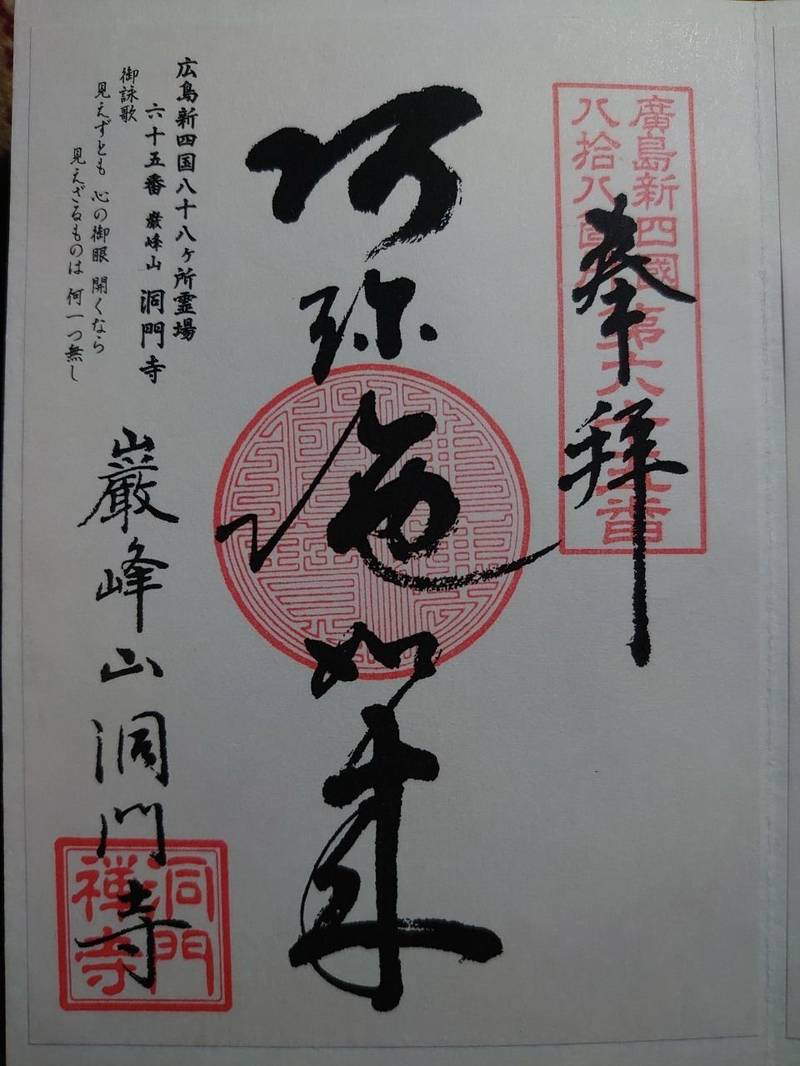 奉拝
廣島新四國第六十五番
八拾八箇所
阿弥陀如来
広島新四国八十八ヶ所霊場
六十五番 巌峰山 洞門寺
御詠歌
見えずとも 心の御眼 開くなら
見えざるものは 何一つ無し
巌峰山洞門寺
洞門
禅寺